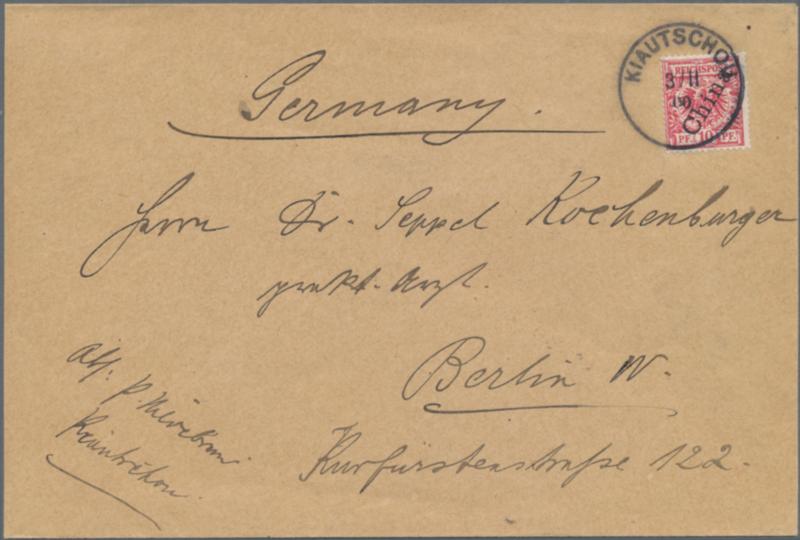 KIAUTSCHOU
3/11
REICHSPOST
China
PF 10 PF
Germany.
Herrn Dr. Seppel Kochenburger
prakt. Arzt.
Berlin W.
Kurfürstenstraße 122.
Abs. P.
Kiautschou.